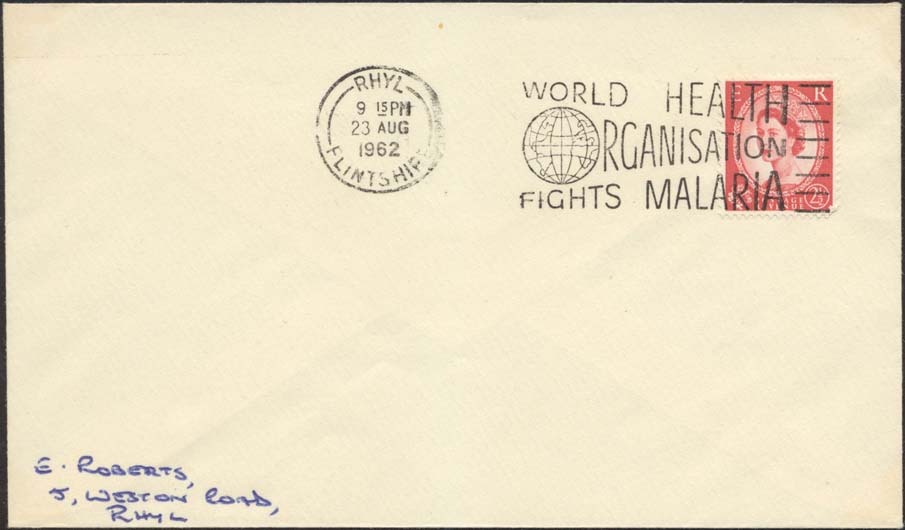 RHYL
9 15PM
23 AUG
1962
FLINTSHIRE
WORLD HEALTH
ORGANISATION
FIGHTS MALARIA
E R
POSTAGE
REVENUE
2½
E. ROBERTS,
5, WESTON ROAD,
RHYL